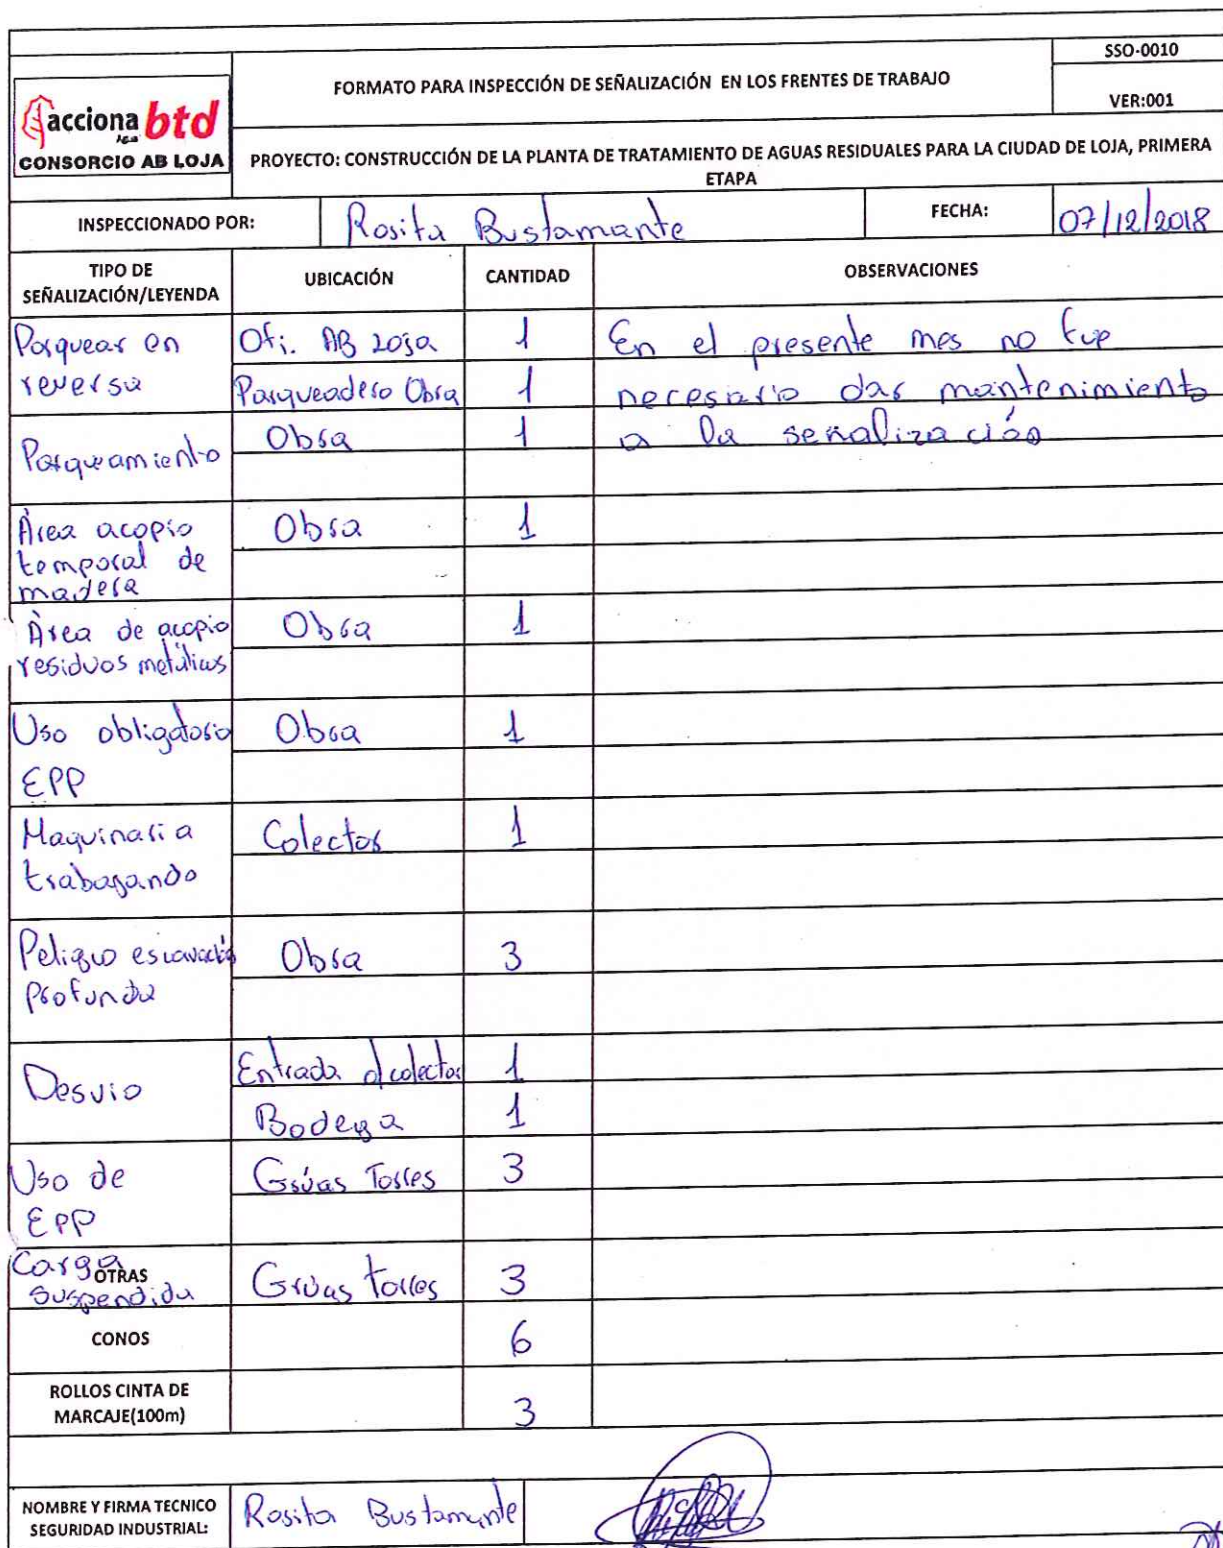 SSO-0010
FORMATO PARA INSPECCIÓN DE SEÑALIZACIÓN EN LOS FRENTES DE TRABAJO
VER:001
acciona btd
agua
CONSORCIO AB LOJA
PROYECTO: CONSTRUCCIÓN DE LA PLANTA DE TRATAMIENTO DE AGUAS RESIDUALES PARA LA CIUDAD DE LOJA, PRIMERA
ETAPA
INSPECCIONADO POR: Rosita Bustamante FECHA: 07/12/2018
TIPO DE
SEÑALIZACIÓN/LEYENDA UBICACIÓN CANTIDAD OBSERVACIONES
Parquear en Ofi. AB Loja 1 En el presente mes no fue
reversa Parqueadero Obra 1 necesario dar mantenimiento
Parqueamiento Obra 1 a la señalización
Área acopio Obra 1
temporal de
madera
Área de acopio Obra 1
residuos metálicos
Uso obligatorio Obra 1
EPP
Maquinaria Colector 1
trabajando
Peligro escavación Obra 3
profunda
Desvio Entrada d colector 1
Bodega 1
Uso de Grúas Torres 3
EPP
Carga OTRAS
suspendida Grúas torres 3
CONOS 6
ROLLOS CINTA DE
MARCAJE(100m) 3
NOMBRE Y FIRMA TECNICO
SEGURIDAD INDUSTRIAL: Rosita Bustamante